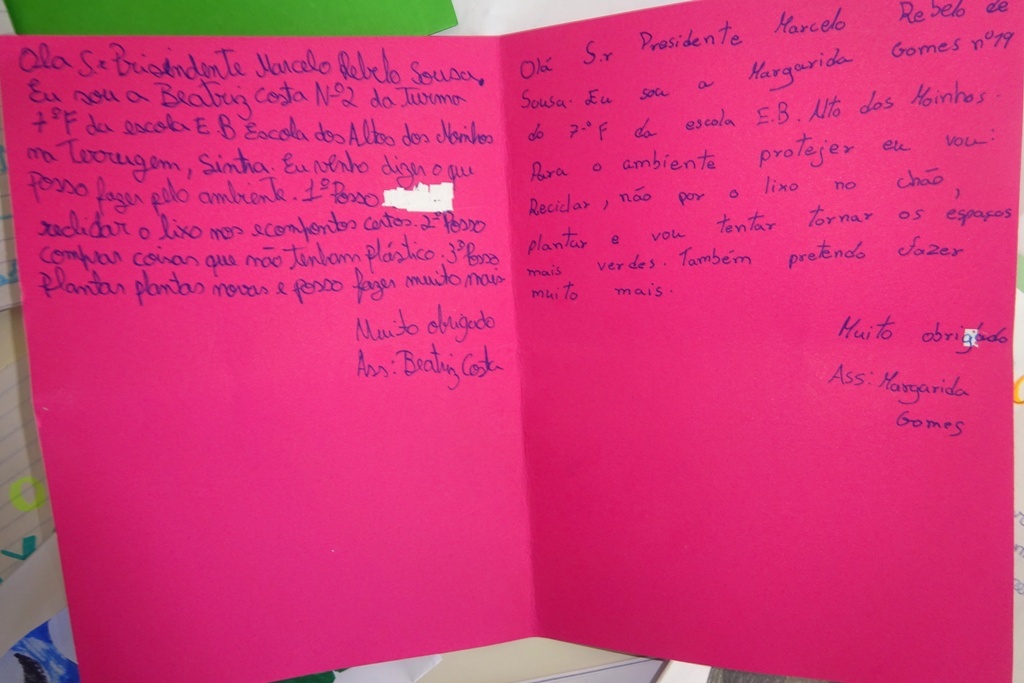 Ola S.r Prisendente Marcelo Rebelo Sousa.
Eu sou a Beatriz Costa Nº2 da Turma
7ºF da escola E.B Escola dos Altos dos Moinhos
na Terrugem, Sintra. Eu venho dizer o que
posso fazer pelo ambiente. 1º Posso
reclidar o lixo nos ecompontos certos. 2º Posso
comprar coisas que não tenham plástico. 3º Posso
Plantar plantas novas e posso fazer muito mais
Muito obrigado
Ass: Beatriz Costa
Olá S.r Presidente Marcelo Rebelo de
Sousa. Eu sou a Margarida Gomes nº19
do 7.ºF da escola E.B. Alto dos Moinhos.
Para o ambiente protejer eu vou:
Reciclar, não por o lixo no chão,
plantar e vou tentar tornar os espaços
mais verdes. Também pretendo fazer
muito mais.
Muito obrigado
Ass: Margarida
Gomes